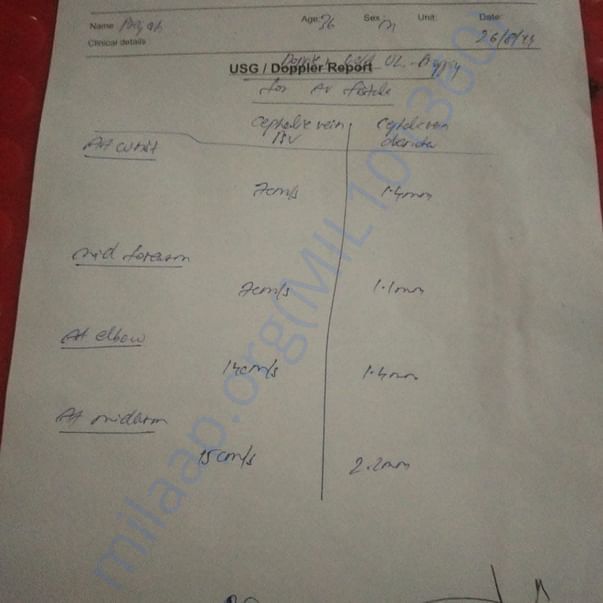 Name Age: 36 Sex M Unit: Date:
Clinical details 26/8/
USG / Doppler Report
for AV fistula
Cephalic vein Cephalic vein
diameter
At wrist
7cm/s 1.4mm
mid forearm
7cm/s 1.1mm
At elbow
14cm/s 1.4mm
At midarm
15cm/s 2.2mm
milaap.org(MIL